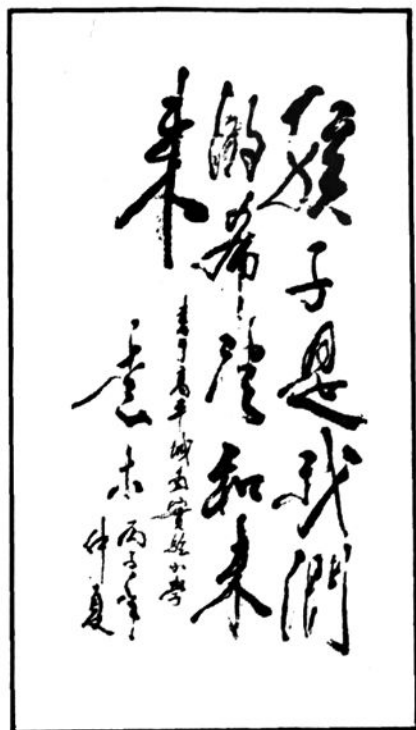 孩子是我們
的希望和未
来
書于高平城南實驗小學
袁木
丙子年
仲夏